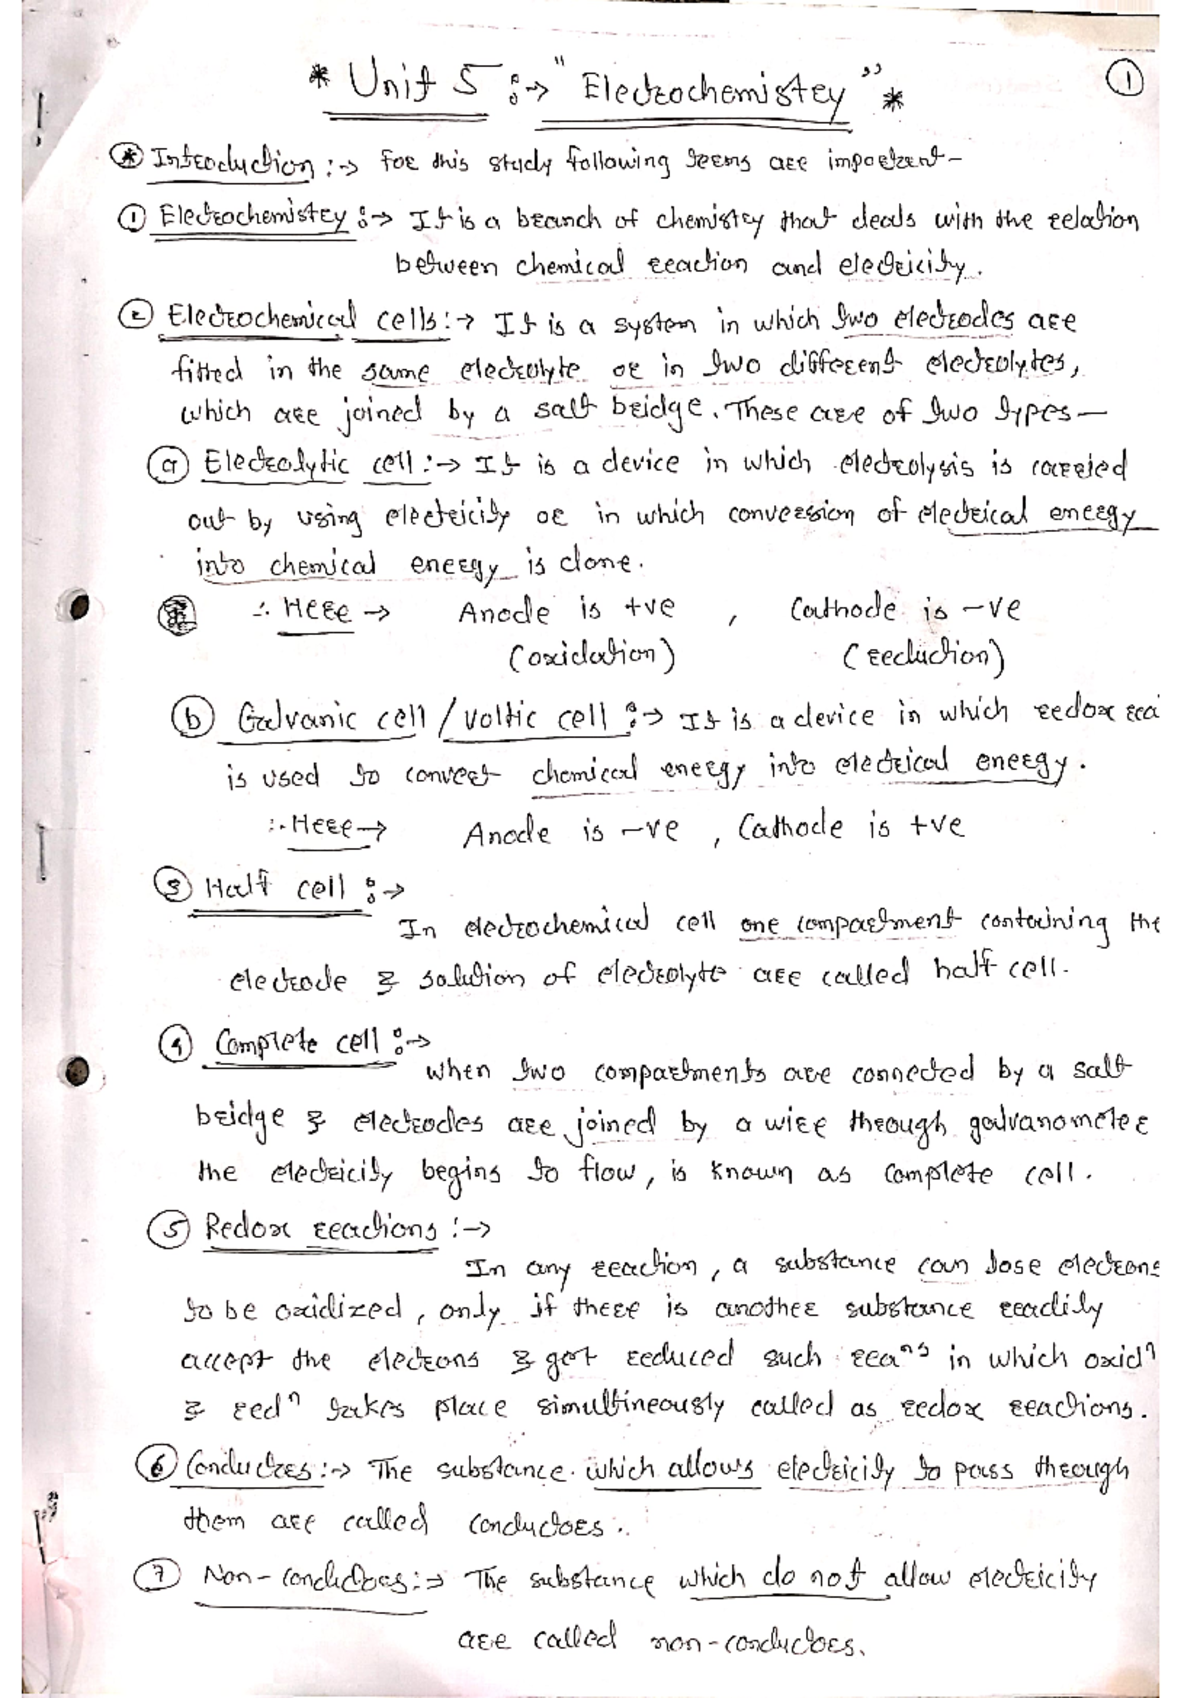 * Unit 5 :→ "Electrochemistry" *
1
* Introduction :→ For this study following terms are important –
1 Electrochemistry :→ It is a branch of chemistry that deals with the relation
between chemical reaction and electricity.
2 Electrochemical cells :→ It is a system in which two electrodes are
fitted in the same electrolyte or in two different electrolytes,
which are joined by a salt bridge. These are of two types –
a Electrolytic cell :→ It is a device in which electrolysis is carried
out by using electricity or in which conversion of electrical energy
into chemical energy is done.
∴ Here → Anode is +ve , Cathode is -ve
(oxidation) (reduction)
b Galvanic cell / voltic cell :→ It is a device in which redox rea
is used to convert chemical energy into electrical energy.
∴ Here → Anode is -ve , Cathode is +ve
3 Half cell :→
In electrochemical cell one compartment containing the
electrode & solution of electrolyte are called half cell.
4 Complete cell :→
When two compartments are connected by a salt
bridge & electrodes are joined by a wire through galvanometer
the electricity begins to flow, is known as complete cell.
5 Redox reactions :→
In any reaction, a substance can lose electrons
to be oxidized, only if there is another substance readily
accept the electrons & get reduced such reaⁿˢ in which oxidⁿ
& redⁿ takes place simultineously called as redox reactions.
6 Conductres :→ The substance which allows electricity to pass through
them are called conductors.
7 Non-conductors :→ The substance which do not allow electricity
are called non-conductors.